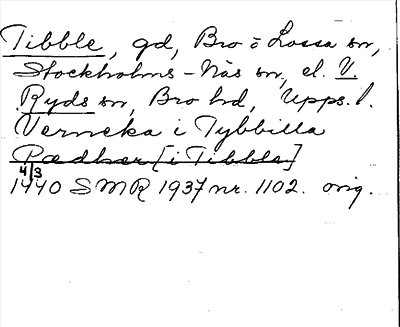 Tibble, gd, Bro o Lossa sn,
Stockholms-Näs sn, el. V.
Ryds sn, Bro hd, Upps. l.
Verneka i Tybbilla
Pædher [i Tibble]
4/3
1440 SMR 1937 nr. 1102. orig.